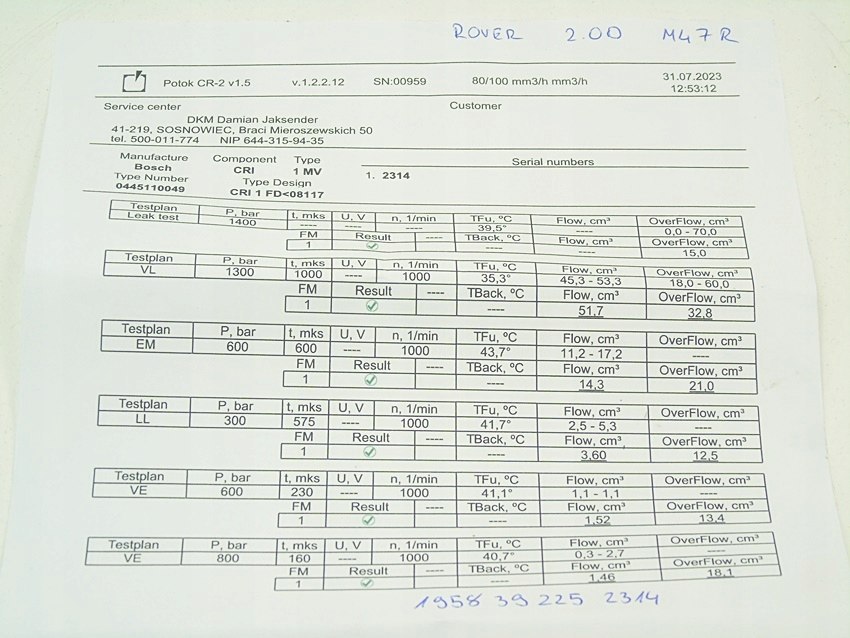 ROVER 2.00 M47R
Potok CR-2 v1.5 v.1.2.2.12 SN:00959 80/100 mm3/h mm3/h 31.07.2023
12:53:12
Service center Customer
DKM Damian Jaksender
41-219, SOSNOWIEC, Braci Mieroszewskich 50
tel. 500-011-774 NIP 644-315-94-35
Manufacture Component Type Serial numbers
Bosch CRI 1 MV 1. 2314
Type Number Type Design
0445110049 CRI 1 FD<08117
Testplan P, bar t, mks U, V n, 1/min TFu, ºC Flow, cm³ OverFlow, cm³
Leak test 1400 ---- ---- ---- 39,5° ---- 0,0 - 70,0
FM Result ---- TBack, ºC Flow, cm³ OverFlow, cm³
1 ---- ---- 15,0
Testplan P, bar t, mks U, V n, 1/min TFu, ºC Flow, cm³ OverFlow, cm³
VL 1300 1000 ---- 1000 35,3° 45,3 - 53,3 18,0 - 60,0
FM Result ---- TBack, ºC Flow, cm³ OverFlow, cm³
1 ---- 51,7 32,8
Testplan P, bar t, mks U, V n, 1/min TFu, ºC Flow, cm³ OverFlow, cm³
EM 600 600 ---- 1000 43,7° 11,2 - 17,2 ----
FM Result ---- TBack, ºC Flow, cm³ OverFlow, cm³
1 ---- 14,3 21,0
Testplan P, bar t, mks U, V n, 1/min TFu, ºC Flow, cm³ OverFlow, cm³
LL 300 575 ---- 1000 41,7° 2,5 - 5,3 ----
FM Result ---- TBack, ºC Flow, cm³ OverFlow, cm³
1 ---- 3,60 12,5
Testplan P, bar t, mks U, V n, 1/min TFu, ºC Flow, cm³ OverFlow, cm³
VE 600 230 ---- 1000 41,1° 1,1 - 1,1 ----
FM Result ---- TBack, ºC Flow, cm³ OverFlow, cm³
1 ---- 1,52 13,4
Testplan P, bar t, mks U, V n, 1/min TFu, ºC Flow, cm³ OverFlow, cm³
VE 800 160 ---- 1000 40,7° 0,3 - 2,7 ----
FM Result ---- TBack, ºC Flow, cm³ OverFlow, cm³
1 ---- 1,46 18,1
1958 39 225 2314